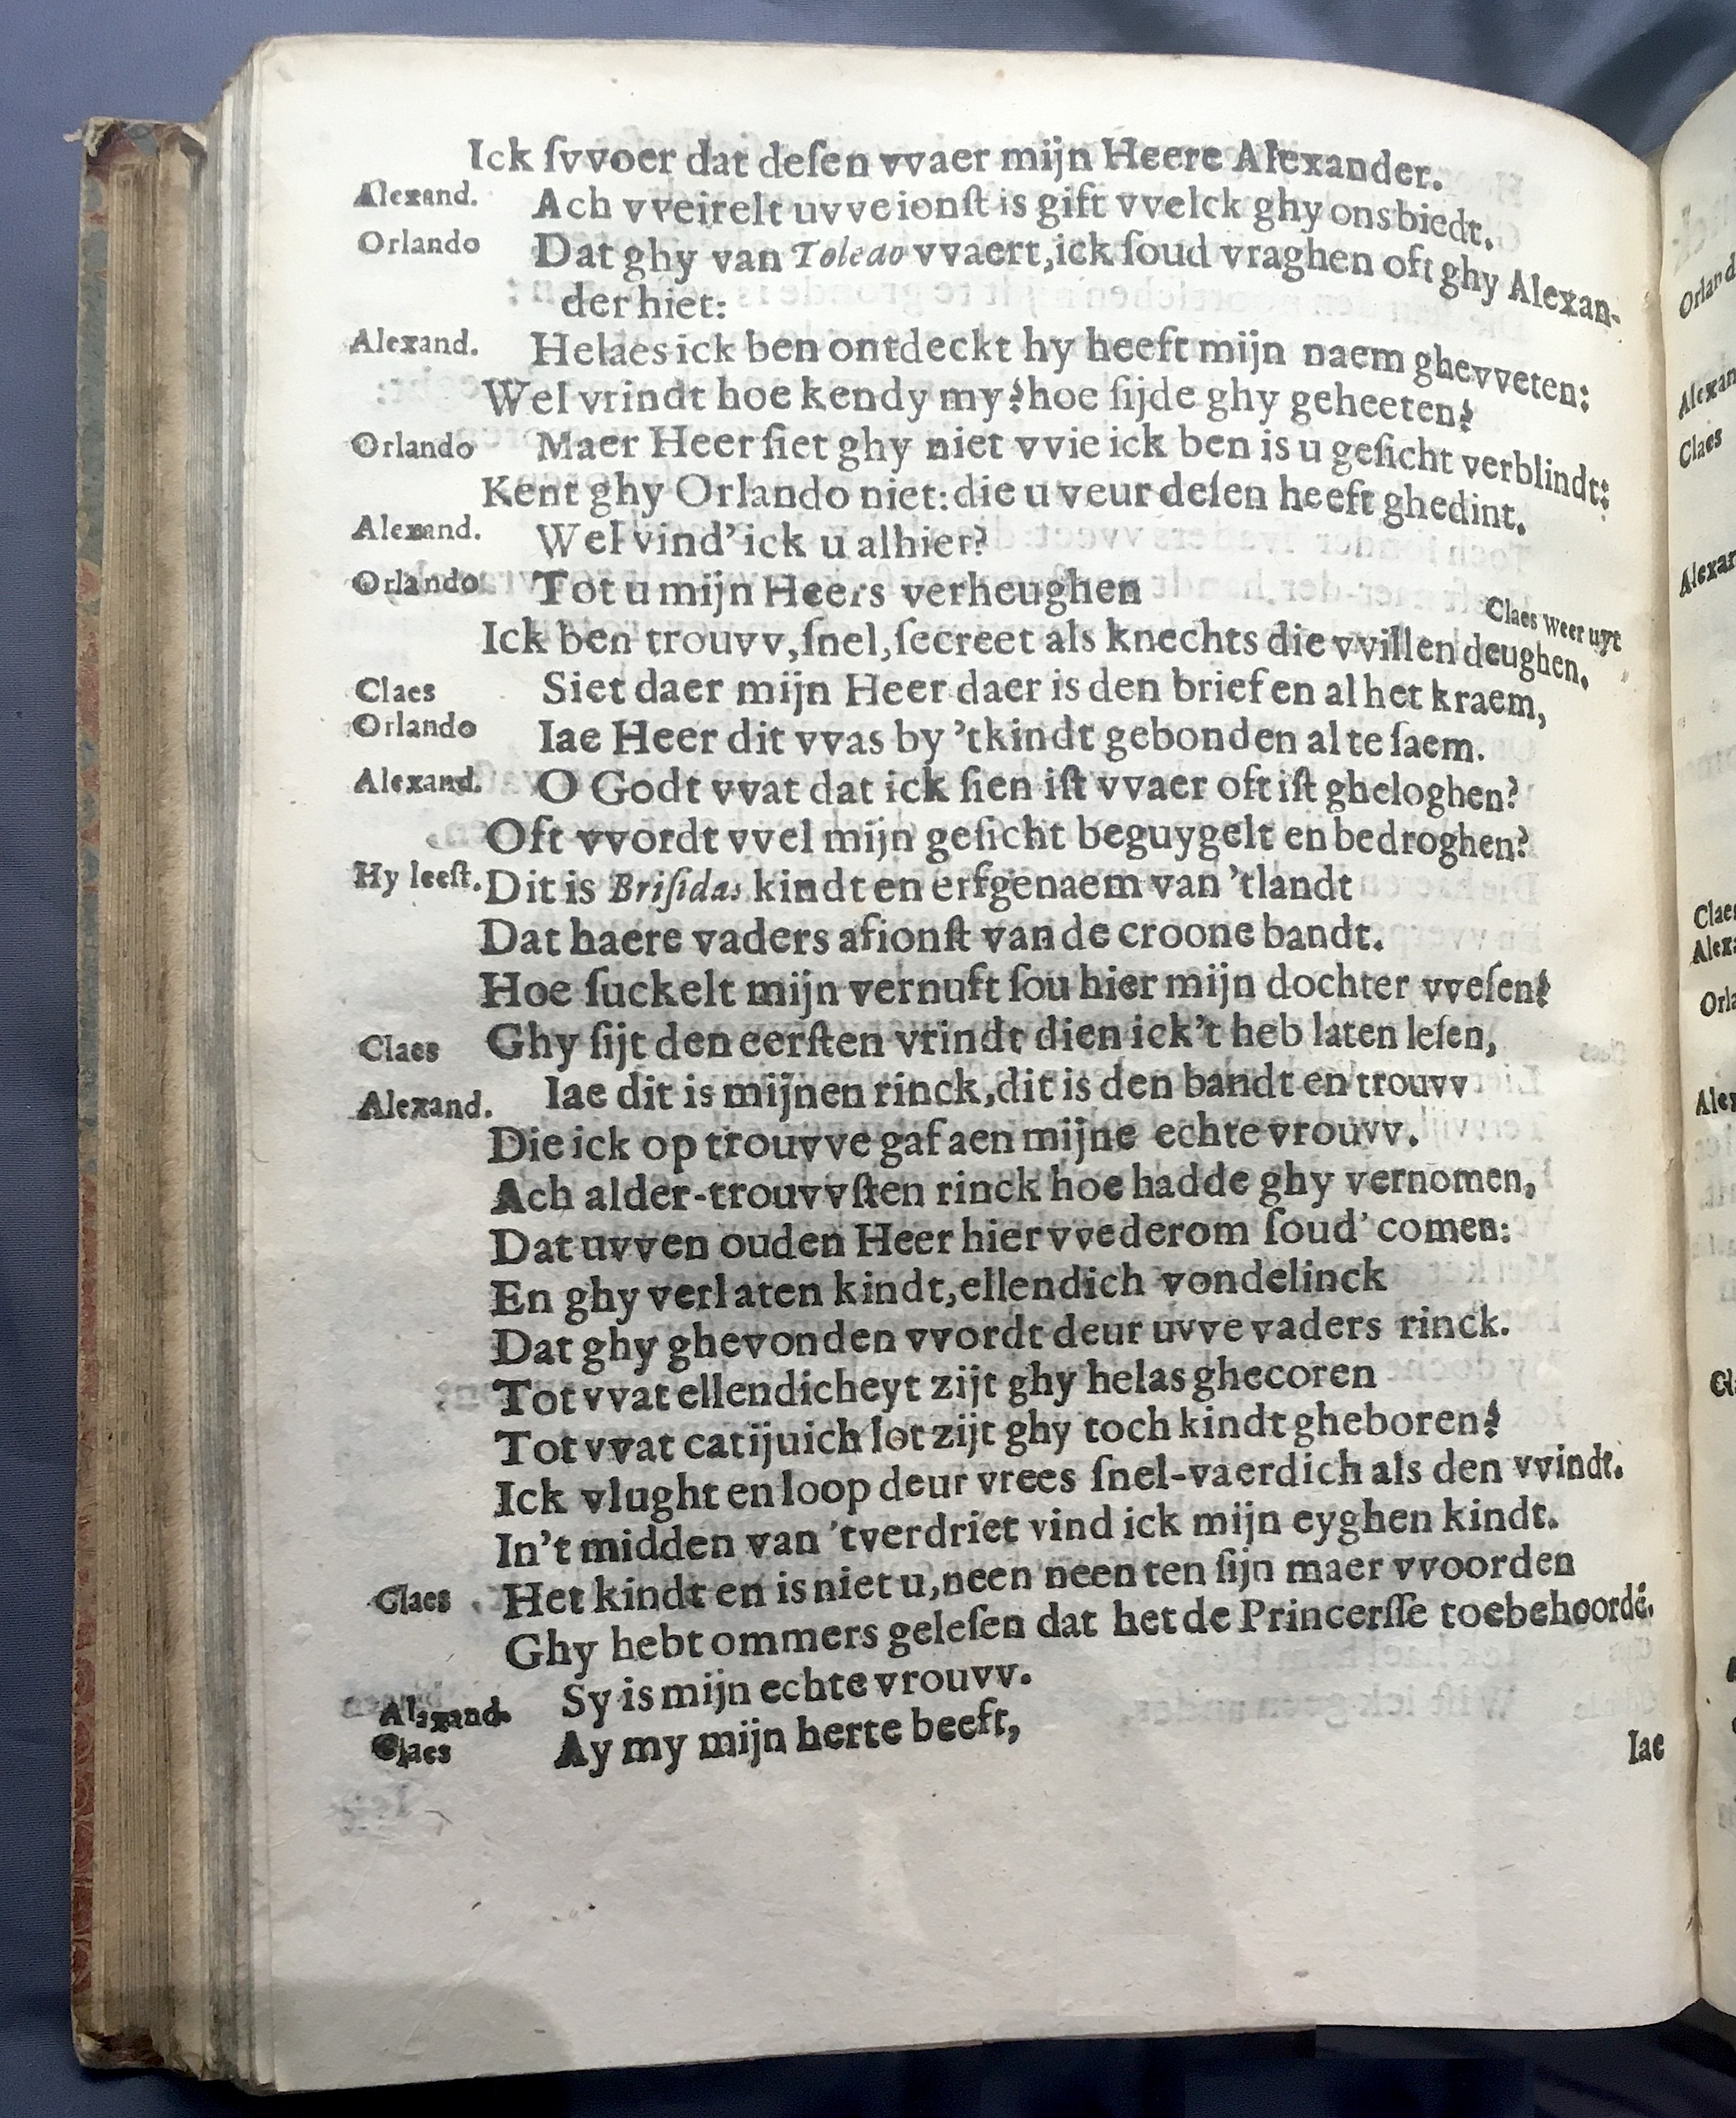 Ick ſvvoer dat deſen vvaer mijn Heere Alexander.
Alexand. Ach vveirelt uvve ionſt is gift vvelck ghy ons biedt.
Orlando Dat ghy van Toledo vvaert, ick ſoud vraghen oft ghy Alexan-
der hiet:
Alexand. Helaes ick ben ontdeckt hy heeft mijn naem ghevveten:
Wel vrindt hoe kendy my? hoe ſijde ghy geheeten?
Orlando Maer Heer ſiet ghy niet vvie ick ben is u geſicht verblindt:
Kent ghy Orlando niet: die u veur deſen heeft ghedint.
Alexand. Wel vind' ick u alhier?
Orlando Tot u mijn Heers verheughen
Claes weer uyt
Ick ben trouvv, ſnel, ſecreet als knechts die vvillen deughen.
Claes Siet daer mijn Heer daer is den brief en al het kraem,
Orlando Iae Heer dit vvas by 'tkindt gebonden al te ſaem.
Alexand. O Godt vvat dat ick ſien iſt vvaer oft iſt gheloghen?
Oft vvordt vvel mijn geſicht beguygelt en bedroghen?
Hy leeſt. Dit is Briſidas kindt en erfgenaem van 'tlandt
Dat haere vaders afionſt van de croone bandt.
Hoe ſuckelt mijn vernuft ſou hier mijn dochter vveſen?
Claes Ghy ſijt den eerſten vrindt dien ick't heb laten leſen,
Alexand. Iae dit is mijnen rinck, dit is den bandt en trouvv
Die ick op trouvve gaf aen mijne echte vrouvv.
Ach alder-trouvvſten rinck hoe hadde ghy vernomen,
Dat uvven ouden Heer hier vvederom ſoud' comen:
En ghy verlaten kindt, ellendich vondelinck
Dat ghy ghevonden vvordt deur uvve vaders rinck.
Tot vvat ellendicheyt zijt ghy helas ghecoren
Tot vvat catijuich lot zijt ghy toch kindt gheboren?
Ick vlught en loop deur vrees ſnel-vaerdich als den vvindt.
In't midden van 'tverdriet vind ick mijn eyghen kindt.
Claes Het kindt en is niet u, neen neen ten ſijn maer vvoorden
Ghy hebt ommers geleſen dat het de Princerſſe toebehoordē.
Alexand. Sy is mijn echte vrouvv.
Claes Ay my mijn herte beeft,
Iae
Orland
Alexan
Claes
Alexan
Claes
Alexa
Orla
Alex
Cl